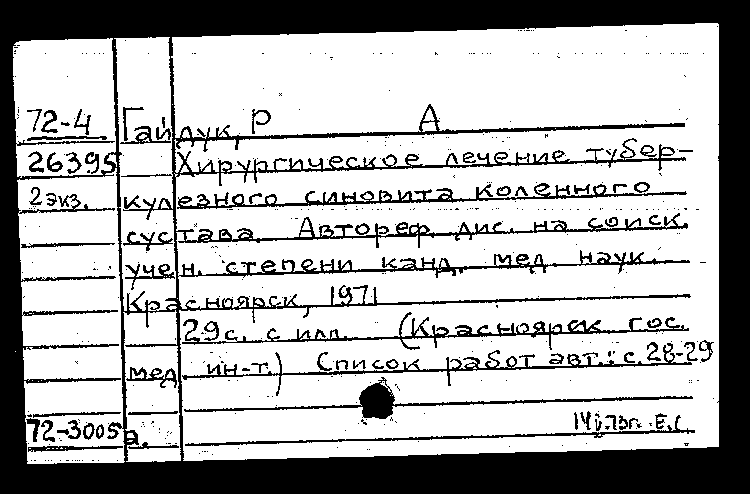 72-4 Гайдук, Р А.
26395 Хирургическое лечение тубер-
2 экз. кулезного синовита коленного
сустава. Автореф. дис. на соиск.
учен. степени канд. мед. наук.
Красноярск, 1971
29 с. с илл. (Красноярск гос.
мед. ин-т.) Список работ авт.: с. 28-29
72-3005а.